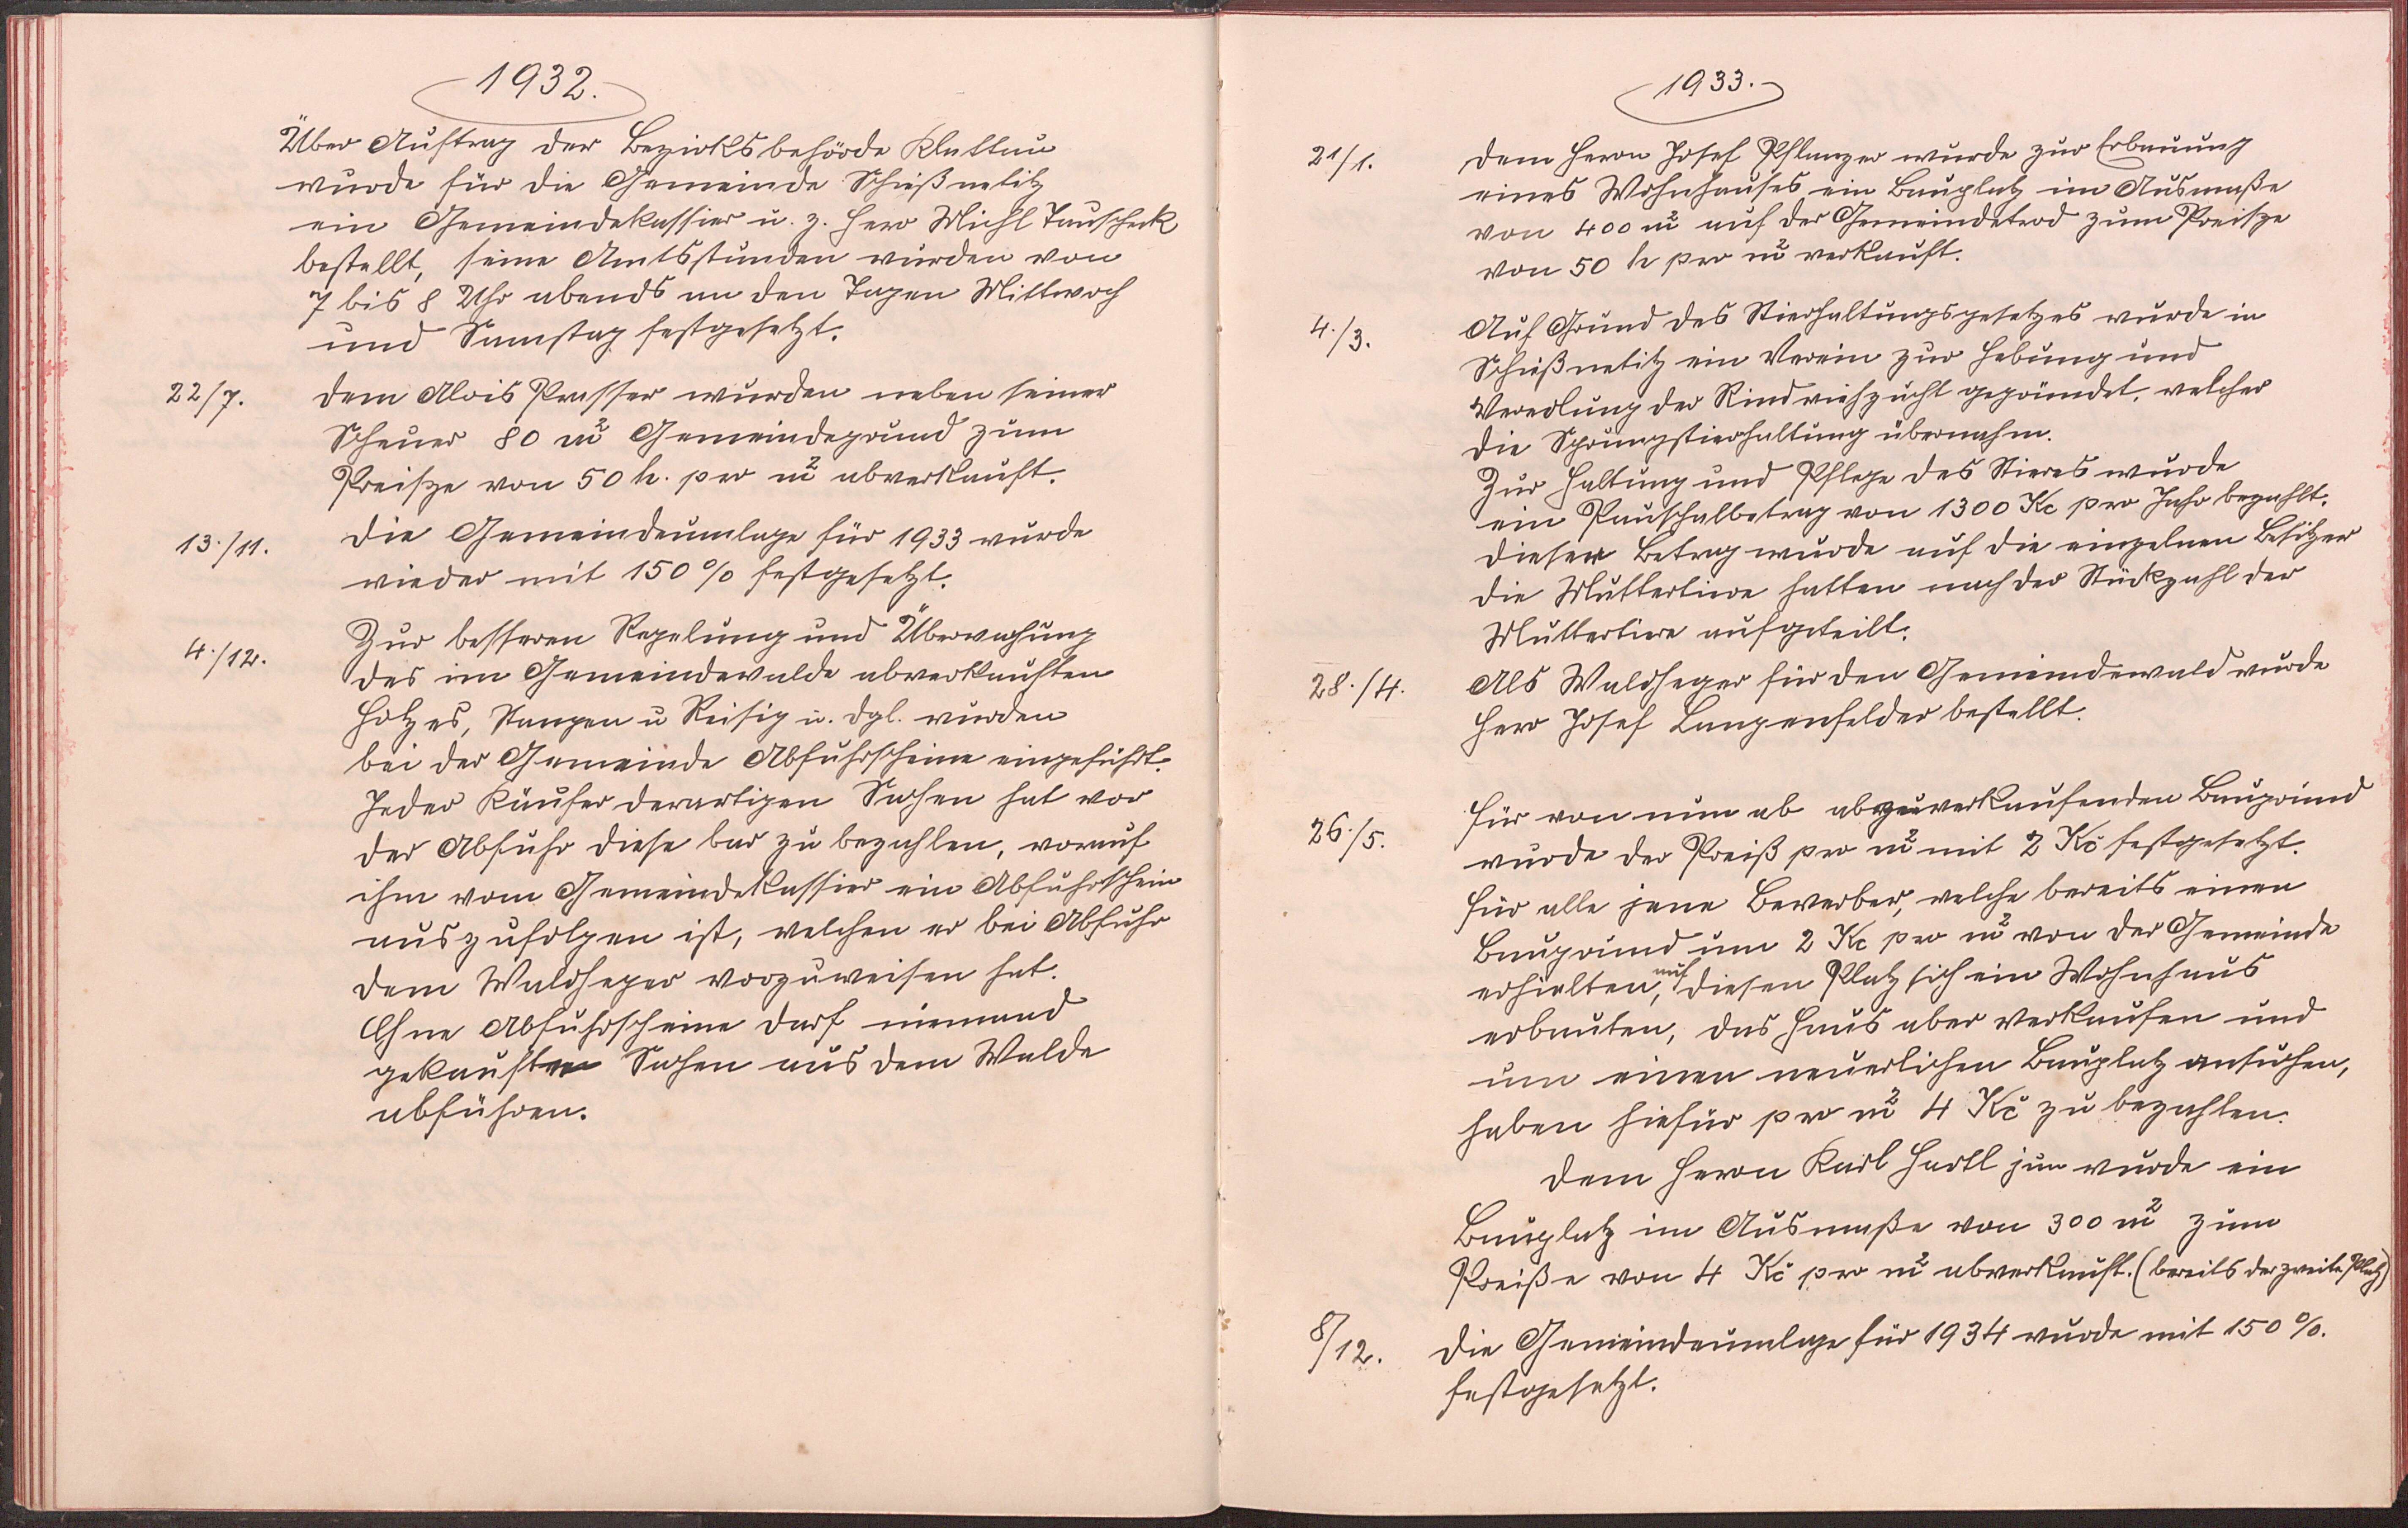 1932.
Über Auftrag der Bezirksbehörde Klattau
wurde für die Gemeinde Schießnetitz
ein Gemeindekassier u. z. Herr Michl Tauscheck
bestellt, seine Amtsstunden wurden von
7 bis 8 Uhr abends an den Tagen Mittwoch
und Samstag festgesetzt.
22/7. Dem Alois Prasser wurden neben seiner
Scheuer 80 m² Gemeindegrund zum
Preisze von 50 h. pro m² abverkauft.
13./11. Die Gemeindeumlage für 1933 wurde
wieder mit 150 % festgesetzt.
4./12. Zur besseren Regelung und Überwachung
des im Gemeindewalde abverkauften
Holzes, Stangen u Reisig u. dgl. wurden
bei der Gemeinde Abfuhrscheine eingeführt.
Jeder Käufer derartigen Sachen hat vor
der Abfuhr diese bar zu bezahlen, worauf
ihm vom Gemeindekassier ein Abfuhrschein
auszufolgen ist, welchen er bei Abfuhr
dem Waldheger vorzuweisen hat.
Ohne Abfuhrscheine darf niemand
gekauften Sachen aus dem Walde
abführen.
1933.
21/1. Dem Herrn Josef Pflanzer wurde zur Erbauung
eines Wohnhauses ein Bauplatz im Ausmaße
von 400 m² auf der Gemeindetrad zum Preisze
von 50 h pro m² verkauft.
4./3. Auf Grund des Stierhaltungsgesetzes wurde in
Schießnetitz ein Verein zur Hebung und
Veredlung der Rindviehzucht gegründet, welcher
die Sprungstierhaltung übernahm.
Zur Haltung und Pflege des Stieres wurde
ein Pauschalbetrag von 1300 Kc pro Jahr bezahlt.
Dieser Betrag wurde auf die einzelnen Besitzer
die Muttertiere hatten nach der Stückzahl der
Muttertiere aufgeteilt.
28./4. Als Waldheger für den Gemeindewald wurde
Herr Josef Langenfelder bestellt.
26./5. Für von nun ab abzuverkaufenden Baugrund
wurde der Preiß pro m² mit 2 Kč festgesetzt.
Für alle jene Bewerber, welche bereits einen
Baugrund um 2 Kc pro m² von der Gemeinde
erhielten, auf diesen Platz sich ein Wohnhaus
erbauten, das Haus aber verkaufen und
um einen neuerlichen Bauplatz ansuchen,
haben hiefür pro m² 4 Kč zu bezahlen.
Dem Herrn Karl Hartl jun wurde ein
Bauplatz im Ausmaße von 300 m² zum
Preiße von 4 Kč pro m² abverkauft. (bereits der zweite Platz)
8/12. Die Gemeindeumlage für 1934 wurde mit 150 %.
festgesetzt.